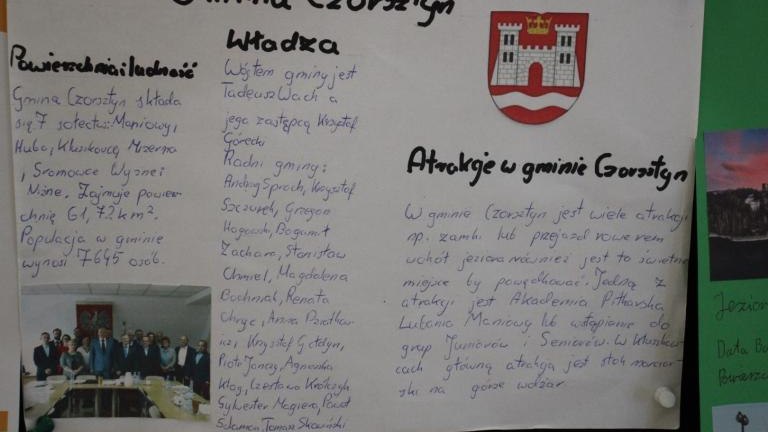 Gmina Czorsztyn
Powierzchnia i ludność
Gmina Czorsztyn składa
się 7 sołectw: Maniowy,
Huba, Kluszkowce, Mizerna
, Sromowce Wyżne i
Niżne. Zajmuje powierz
chnię 61,72 km².
Populacja w gminie
wynosi 7645 osób.
Władza
Wójtem gminy jest
Tadeusz Wach a
jego zastępcą Krzysztof
Górecki
Radni gminy:
Andrzej Sproch, Krzysztof
Szczurek, Grzegorz
Bogumił
Zachara, Stanisław
Chmiel, Magdalena
Bochniak, Renata
Chryc, Anna Dziatko
icz, Krzysztof
Piotr Janczy, Agnieszka
Kłag, Czesława Królczyk
Sylwester Magiera, Paweł
Salamon, Tomasz Skawiński
Atrakcje w gminie Czorsztyn
W gminie Czorsztyn jest wiele atrakcji
np. zamki lub przejazd rowerem
wokół jeziora również jest to świetne
miejsce by powędkować. Jedną z
atrakcji jest Akademia Piłkarska
Lubania Maniowy lub wstąpienie do
grup Juniorów i Seniorów. W Kluszkow
cach główną atrakcją jest stok narciar
ski na górze wdżar
Jezior
Data
Powierz